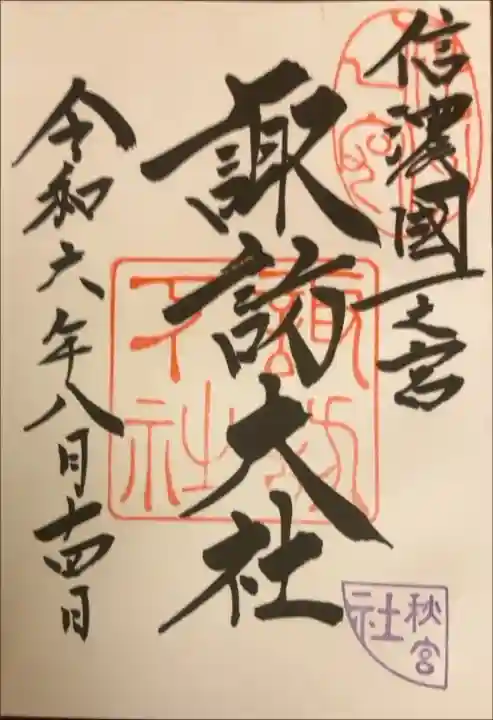 信濃國一之宮
諏訪大社
令和六年八月十四日
諏訪下社
秋宮
社